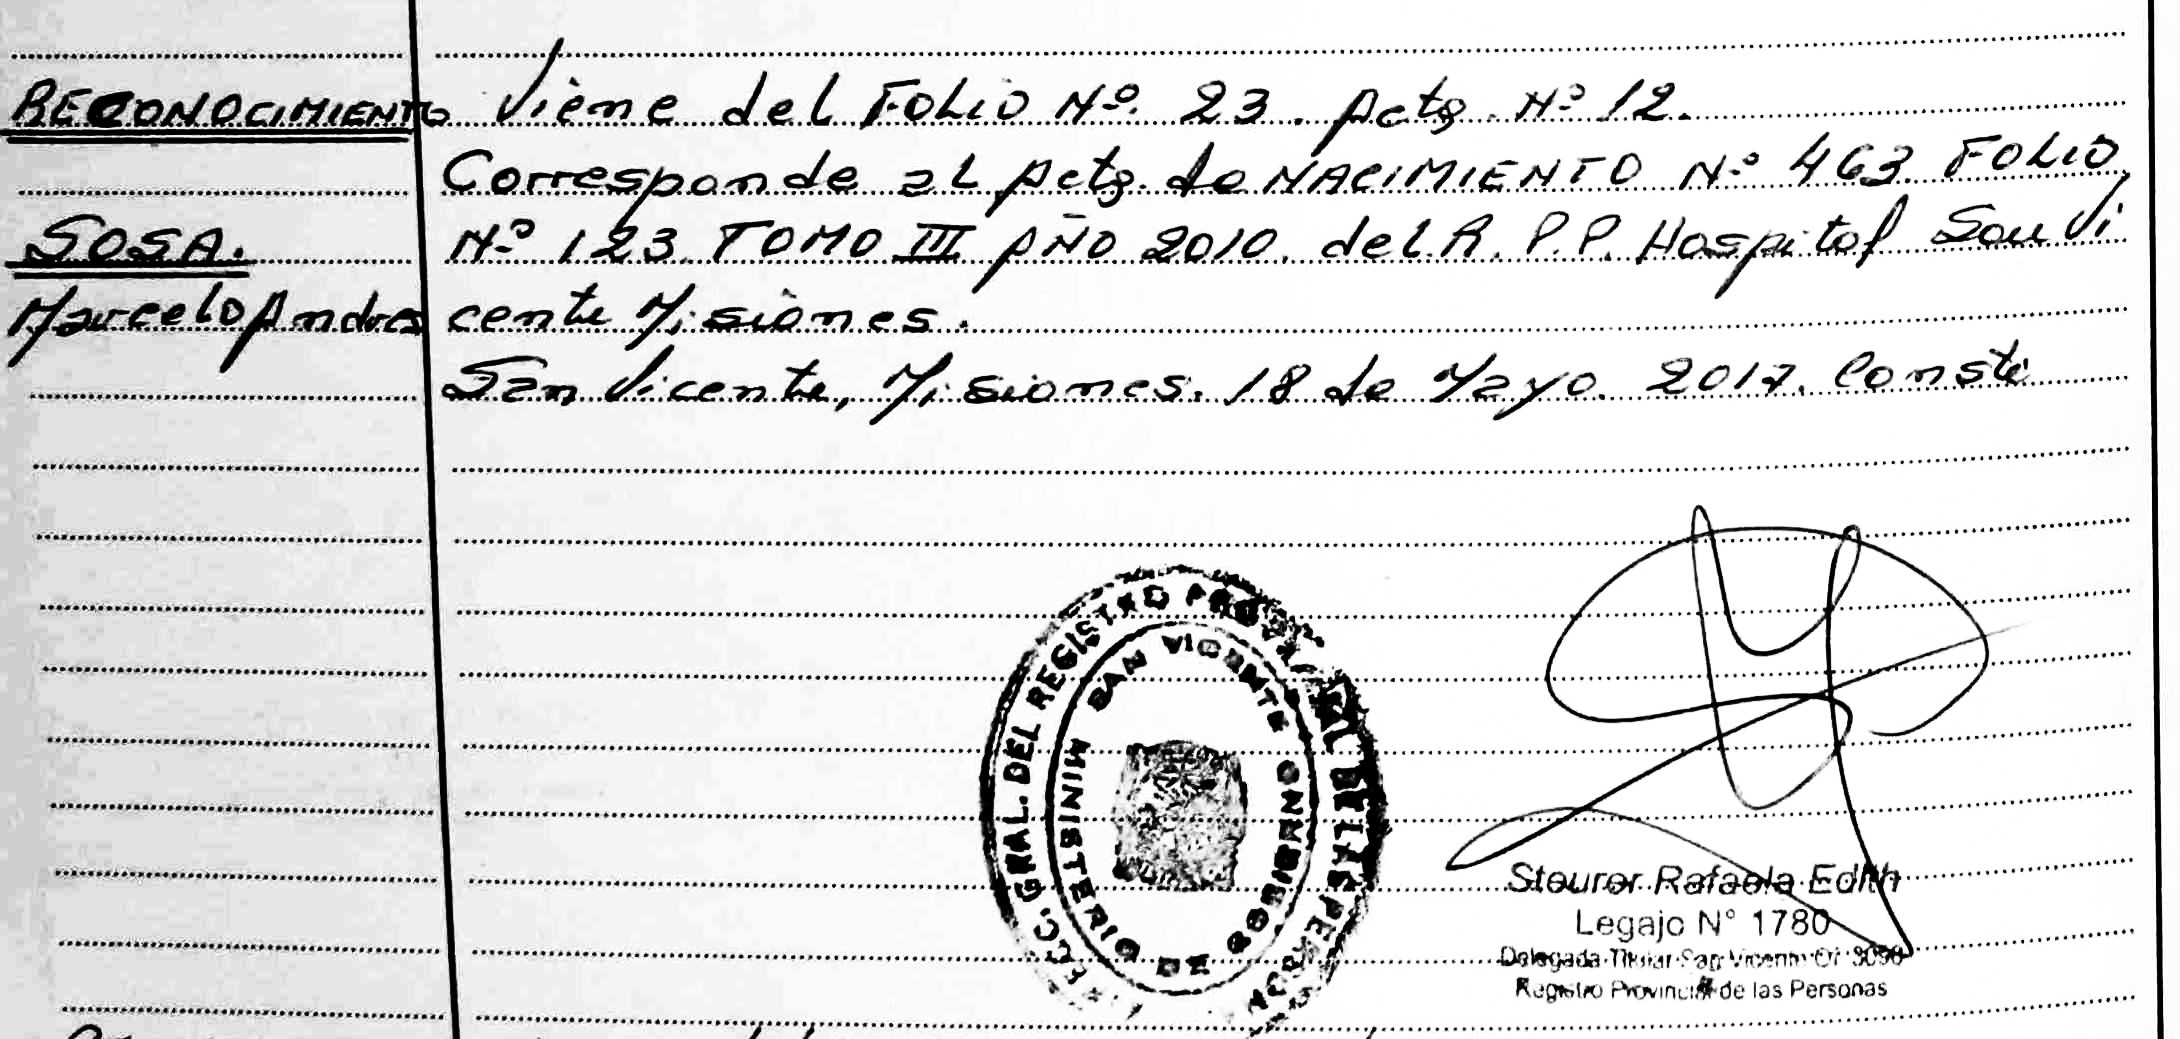 RECONOCIMIENTO Viene del FOLIO Nº. 23. Acta. Nº 12.
Corresponde al Acta. de NACIMIENTO Nº 463 FOLIO
SOSA. Nº 123. TOMO III AÑO 2010. del R. P.P. Hospital San Vi
Marcelo Andres cente Misiones.
San Vicente, Misiones. 18 de Mayo. 2017. Conste
DIRECC. GRAL. DEL REGISTRO PROVINCIAL DE LAS PERSONAS
SAN VICENTE
MINISTERIO DE GOBIERNO
Steurer Rafaela Edith
Legajo N° 1780
Delegada Titular San Vicente Of.
Registro Provincial de las Personas